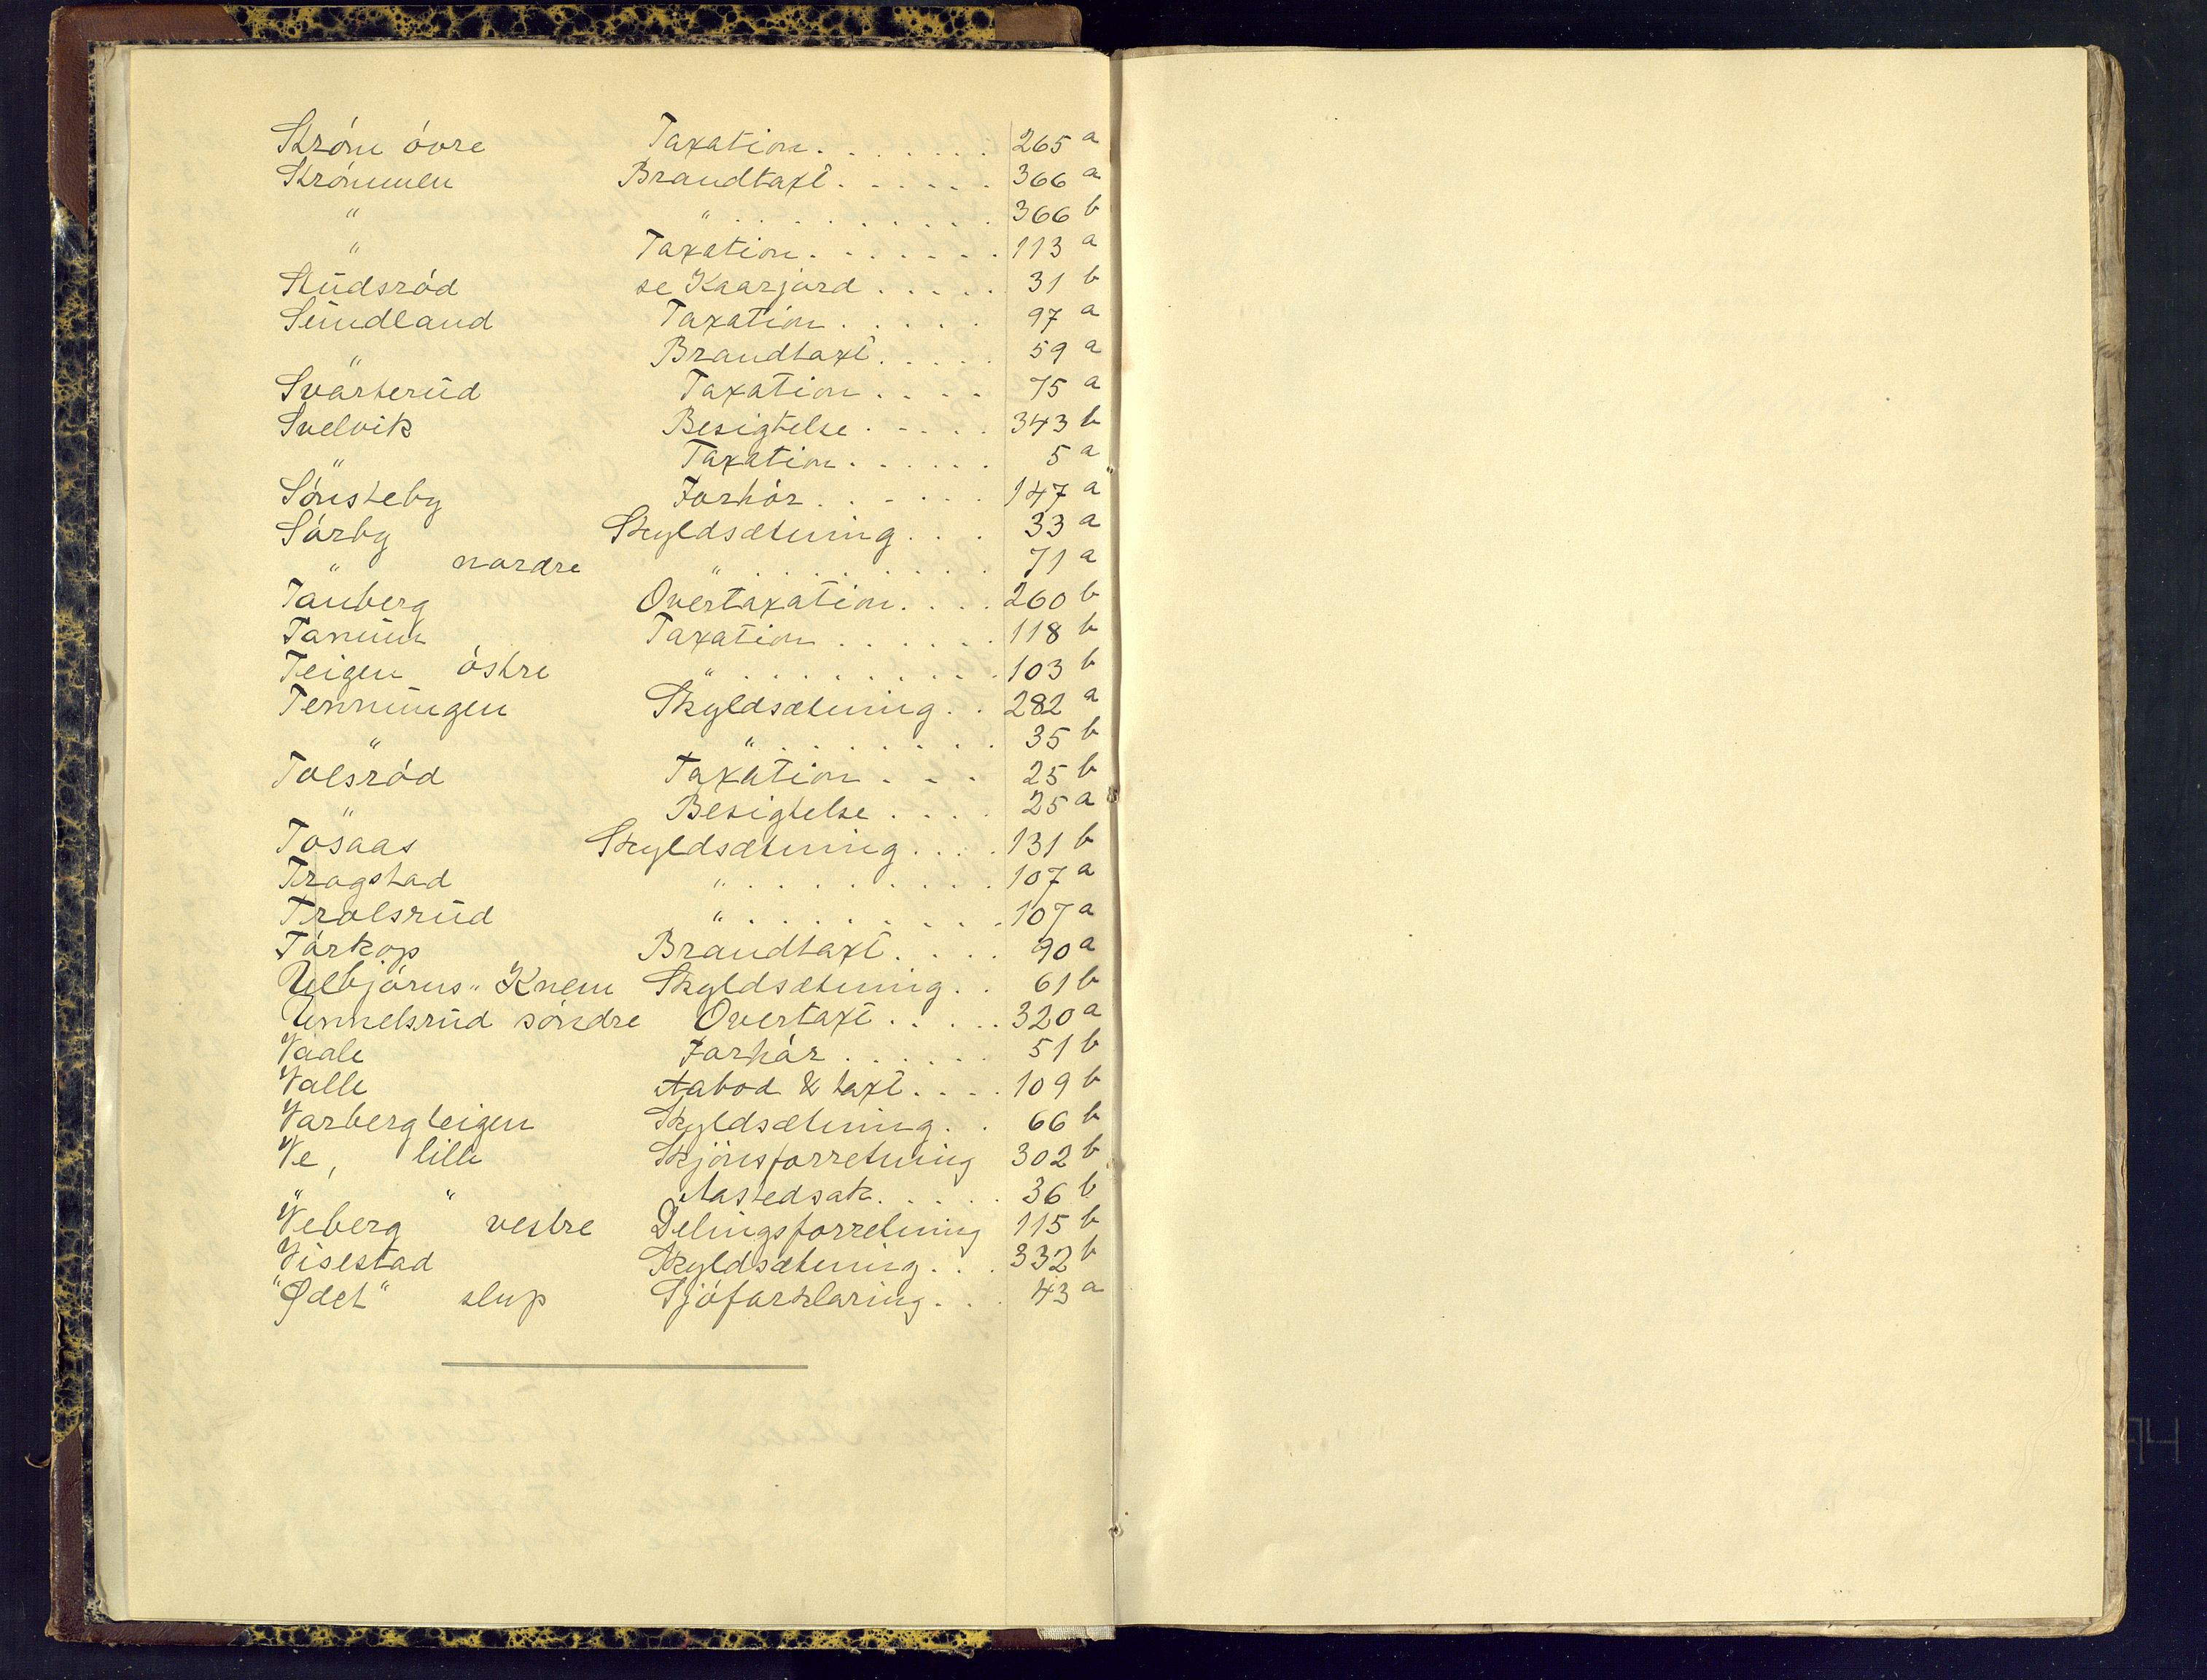 Ström óvre Taxation . . . . . . . 265 a
Strömmen Brandtaxt . . . . . . 366 a
" " . . . . . . . . . 366 b
" Taxation . . . . . . . 113 a
Studsród se Kaarjord . . . . . 31 b
Sundland Taxation . . . . . 97 a
" Brandtaxt . . . . . 59 a
Svarterud Taxation . . . . 75 a
Svelvik Besigtelse . . . . . 343 b
" Taxation . . . . . . 5 a
Sónsteby Forhór . . . . . . 147 a
Sórby Skyldsætning . . . 33 a
" nordre " . . . . . . . . . 71 a
Tanberg Overtaxation . . . . 260 b
Tanum Taxation . . . . . . 118 b
Teigen óstre " . . . . . . . . . 103 b
Tenningen Skyldsætning . . 282 a
" " . . . . . . . . 35 b
Tolsród Taxation . . . 25 b
" Besigtelse . . . . 25 a
Tosaas Skyldsætning . . . . 131 b
Trogstad " . . . . . . . . . 107 a
Trolsrud " . . . . . . . . . 107 a
Tórkop Brandtaxt . . . . 90 a
Ulbjórns " Knem Skyldsætning . . 61 b
Unnelsrud sóndre Overtaxt . . . . . 320 a
Vaale Forhór . . . . . . 51 b
Valle Aabod & taxt . . . . 109 b
Varbergteigen Skyldsætning . . 66 b
Ve, lille Skjónsforretning 302 b
" " Aastedsak . . . . . 36 b
Veberg vestre Delingsforretning 115 b
Visestad Skyldsætning . . . 332 b
"Ødet" slup Sjóforklaring . . . 43 a